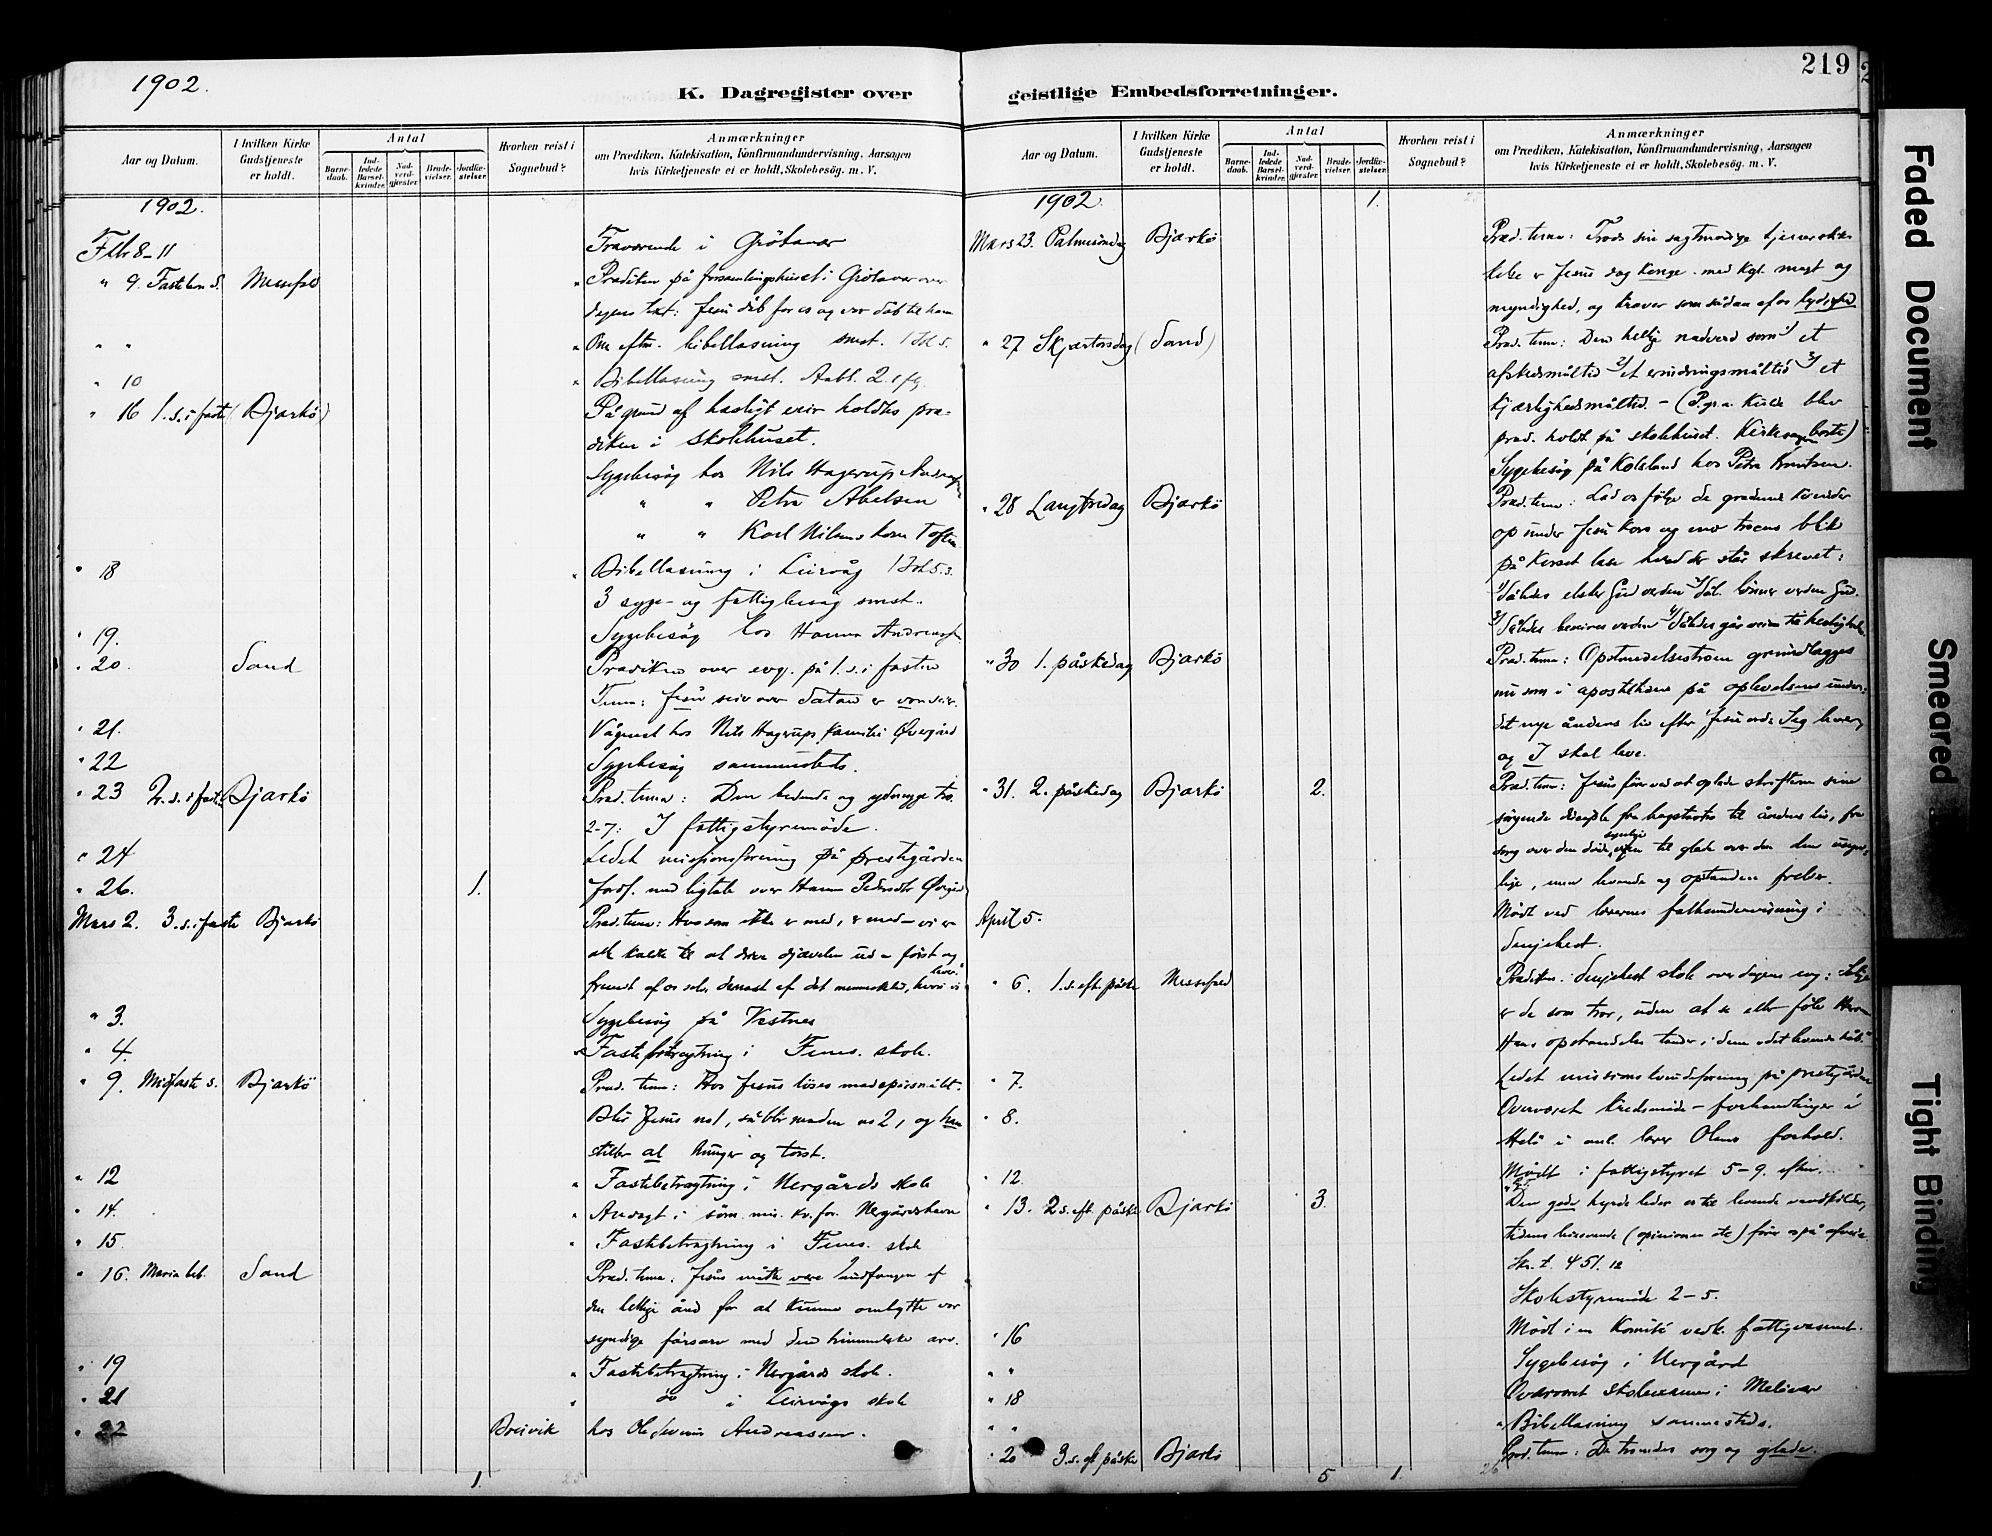 1902.
K. Dagregister over
Aar og Datum.
I hvilken Kirke Gudstjeneste er holdt.
Antal
Barnedaab.
Indledede Barselkvinder.
Nadverdgjester.
Brudevielser.
Jordfæstelser.
Hvorhen reist i Sognebud?
Anmærkninger
om Prædiken, Katekisation, Konfirmandundervisning, Aarsagen
hvis Kirketjeneste ei er holdt, Skolebesøg. m. V.
1902.
Febr 8-11 Fraværende i Grötavær
" 9. Fastelavn s. Messefald " Prædiken på forsamlingshuset i Grötavær over
dagens text: Jesu dåb for os og vor dåb til ham
" " " Om eftm. bibellæsning smst. 1 Joh 5.
" 10 " Bibellæsning smst. Aab. 2. 1 fg.
" 16 1. s. i faste (Bjarkö) På grund af hæsligt veir holdtes præ-
diken i skolehuset.
Sygebesög hos Nils Hagerup
" " Petra Abelsen
" " Karl Nilsens kone Toften
" 18 " Bibellæsning i Leirvåg 1 Joh 5.
3 syge- og fattigbesög smst.
" 19. Sygebesög hos Hanna
" 20. Sand Prædiken over evg. på 1. s. i fasten
Tema: Jesu seir over Satan er vor seir.
" 21. hos Nils Hagerups familie Øvergård
" 22 Sygebesög sammesteds.
" 23 2. s. i faste Bjarkö Præd. tema: Den bedende og ydmyge tro.
2-7: I fattigstyremöde.
" 24 Ledet missionsforening på prestegården
" 26. 1. Jordf. med ligtale over Hanna
Mars 2. 3. s. i faste Bjarkö Præd. tema: Hvo som ikke er med, er mod vi er
alle kaldt til at drive djævelen ud - först og
fremst af os selv dernæst af det menneskeliv, hvori vi lever.
" 3. Sygebesög på Vestnes
" 4. " Fastebetragtning i Fenes skole.
" 9. Midfaste s. Bjarkö Præd. tema: Hos Jesus löses madspörsmålet.
Blir Jesus no 1, så blir maden no 2, og han
stiller al hunger og törst.
" 12 " Fastebetragtning i Nergårds skole
" 14. " Andagt i söm. mis. kv. for. Nergårdshavn
" 15 " Fastebetragtning i Fenes skole
" 16. Maria beb. Sand Præd. tema: Jesus måtte være undfangen af
den hellige ånd for at kunne ombytte vor
syndige med den himmelske arv.
" 19 " Fastebetragtning i Nergårds skole.
" 21 " do i Leirvågs skole
" 22 Breivik hos Ole Severin Andreassen.
1.
219
geistlige Embedsforretninger.
Aar og Datum.
I hvilken Kirke Gudstjeneste er holdt.
Antal
Barnedaab.
Indledede Barselkvinder.
Nadverdgjester.
Brudevielser.
Jordfæstelser.
Hvorhen reist i Sognebud?
Anmærkninger
om Prædiken, Katekisation, Konfirmandundervisning, Aarsagen
hvis Kirketjeneste ei er holdt, Skolebesøg. m. V.
1902. 1.
Mars 23. Palmesöndag Bjarkö Præd. tema: Trods sin sagtmodige tjenerskik-
kelse er Jesus dog konge med kgl. magt og
myndighed, og kræver som sådan af os lydighed
" 27 Skjærtorsdag (Sand) Præd. tema: Den hellige nadverd som 1/ et
afskedsmåltid 2/ et erindringsmåltid 3/ et
kjærlighedsmåltid. - (P. gr. a. kulde blev
præd. holdt på skolehuset. Kirkesangen borte)
Sygebesög på Kolsland hos Petra Knutsen.
" 28 Langfredag Bjarkö Præd. tema: Lad os følge de grædende kvinder
op under Jesu kors og med troens blik
på korset læse hvad der står skrevet:
1/ Således elsker Gud verden 2/ Sål. lönner verden Gud.
3/ Således beseires verden 4/ Således går veien til herligheden
" 30 1. påskedag Bjarkö Præd. tema: Opstandelsestroen grundlægges
nu som i apostlenes på oplevelsens under:
det nye åndens liv efter Jesu ord: Jeg lever,
og I skal leve.
" 31. 2. påskedag Bjarkö 2. Præd. tema: Jesus förer ved at oplade skrifterne sine
sörgende disciple fra bogstavtro til åndens liv, fra
sorg over den döde, synlige til glæde over den usyn-
lige, men levende og opstandne frelser.
April 5. Mödt ved lærernes fællesundervisning i
Senjehest.
" 6. 1. s. eft. påske Messefald Prædiken. Senjehest skole over dagens evg: Salige
er de som tror, uden at se eller föle Herren
Hans opstandelse tænder i dem "det levende håb."
" 7. Ledet missionskvindeforening på prestegården
" 8. Overværet kredsmöde - forhandlinger i
i anl. lærer Olsens forhold.
" 12. Mödt i fattigstyret 5-9. eftm.
" 13. 2 s. eft. påske Bjarkö 3. Den gode hyrde leder os til levende vandkilder,
tidens leiesvende (opinionen etc) förer os på afveie
Skr. t. 4 51. 12
Skolestyremöde 2-5.
" 16 Mödt i en komité vedk. fattigvæsenet.
" " Sygebesög i Nergård
" 18 Overværet skoleexamen i Melåvær
" " " Bibellæsning sammesteds.
" 20 3. s. eft påske Bjarkö Præd. tema: De troendes sorg og glæde.
5 1.
26
Faded Document
Smeared
Tight Binding